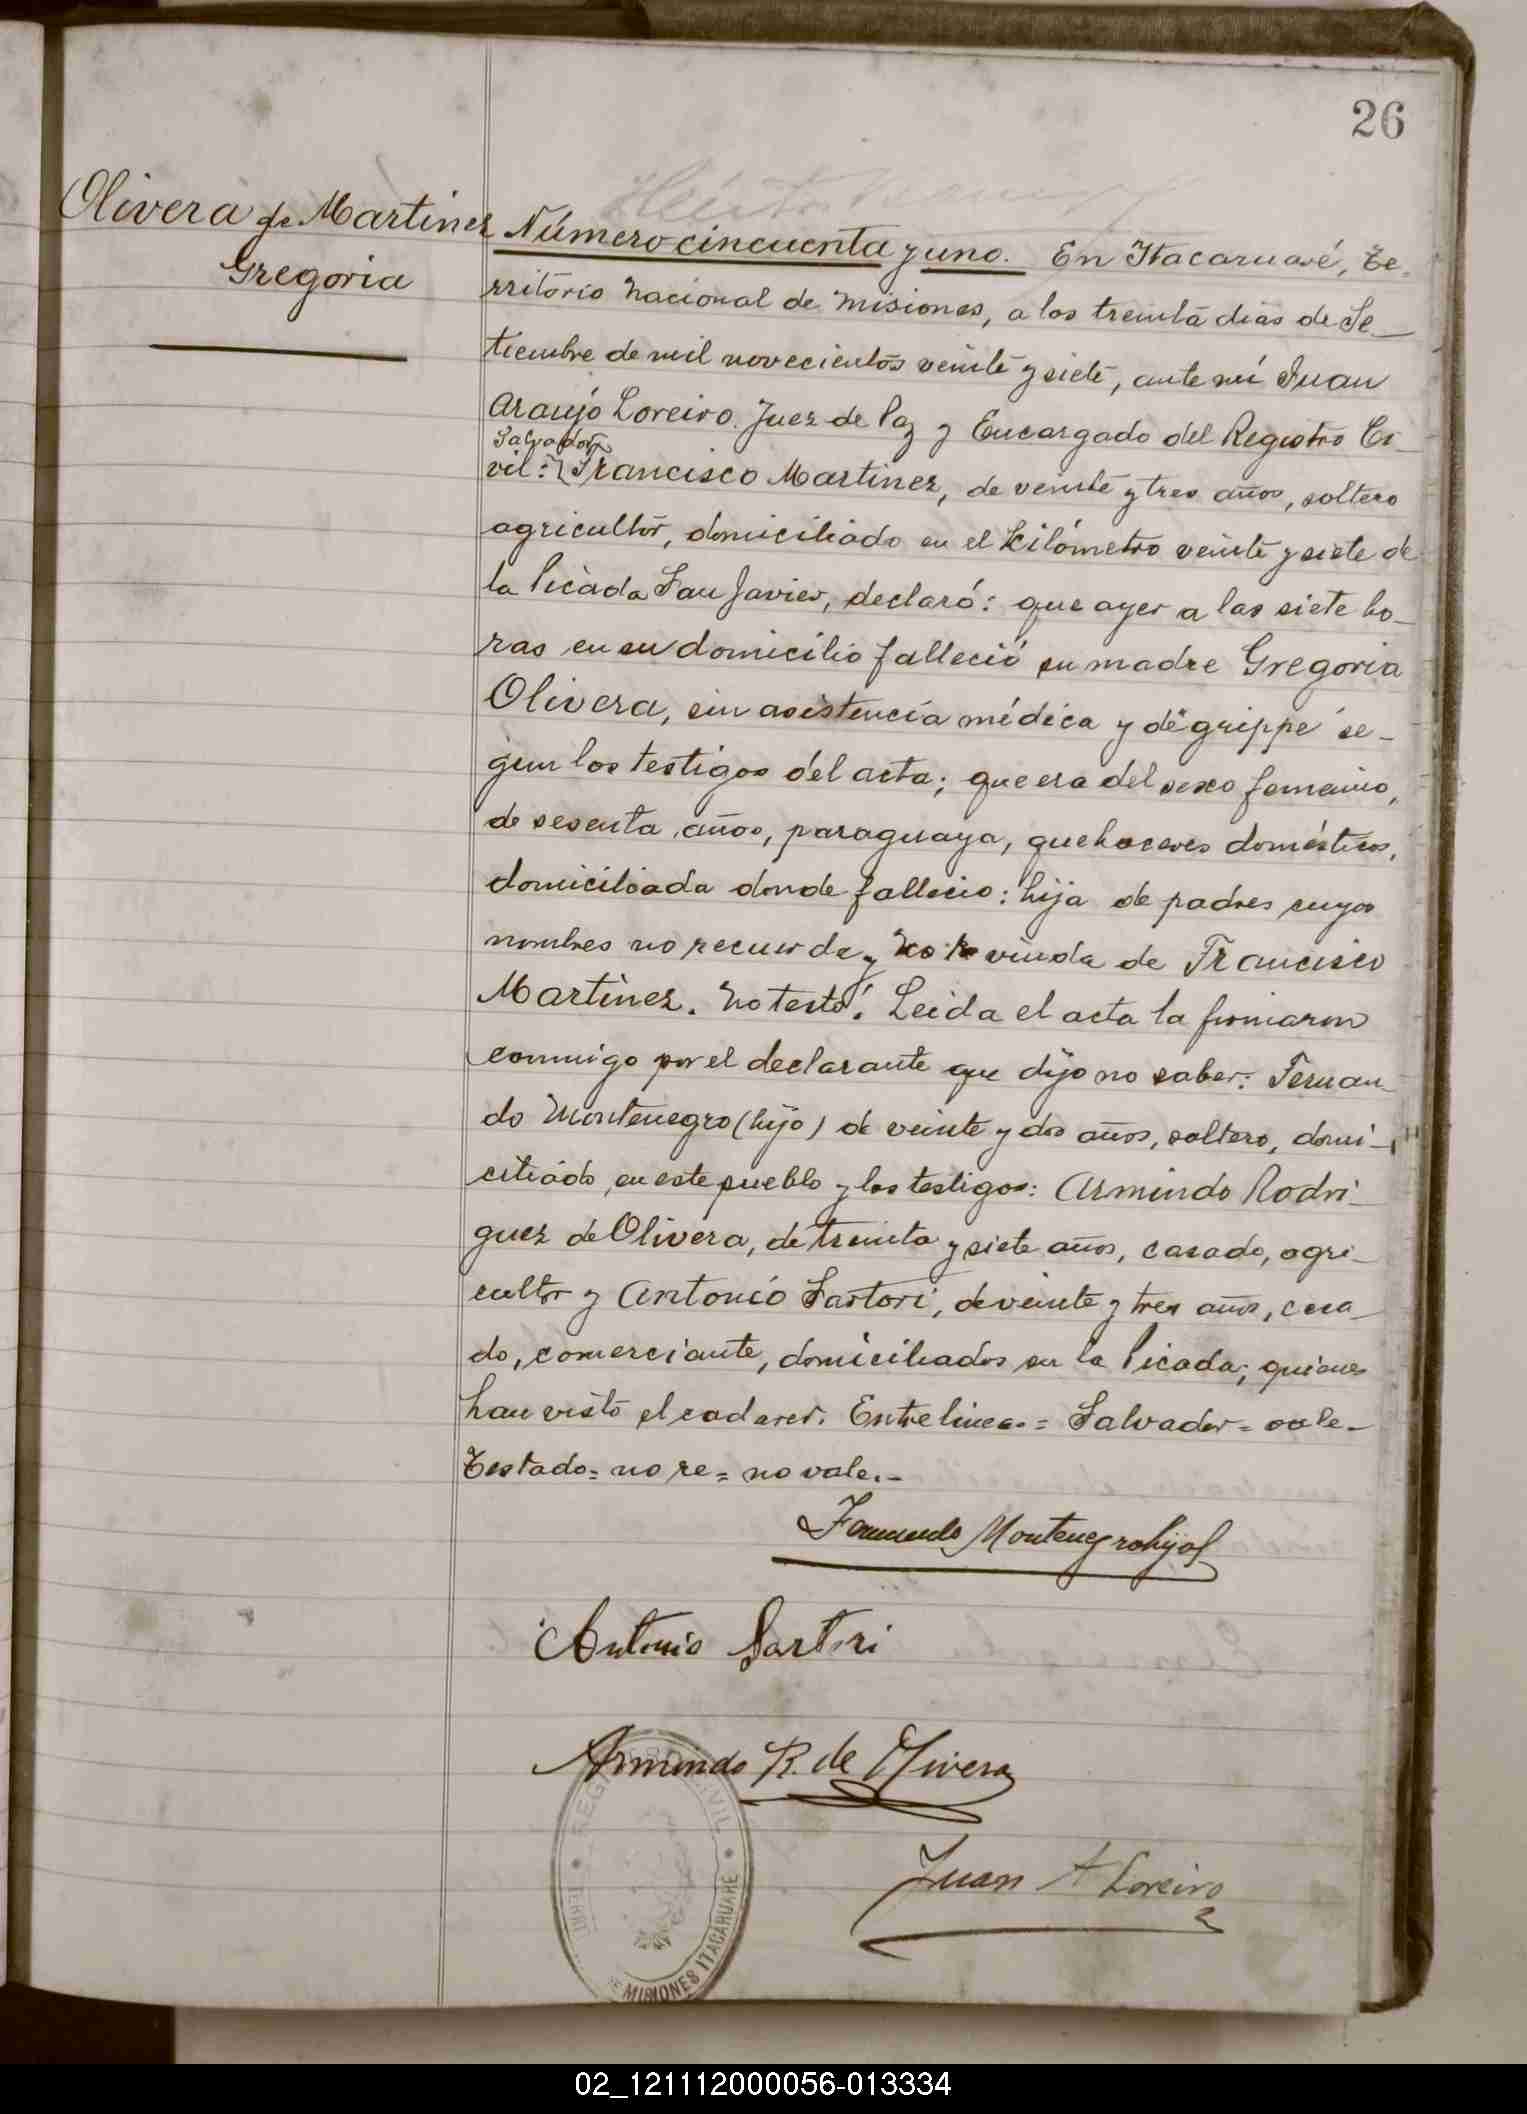 26
Olivera de Martinez
Gregoria
Número cincuenta y uno. En Itacaruaré, Te-
rritorio Nacional de Misiones, a los treinta dias de Se-
tiembre de mil novecientos veinte y siete, ante mí Juan
Araujo Loreiro. Juez de Paz y Encargado del Registro Ci-
Salvador
vil: Francisco Martinez, de veinte y tres años, soltero
agricultor, domiciliado en el Kilómetro veinte y siete de
la Picada San Javier, declaró: que ayer a las siete ho-
ras en su domicilio falleció su madre Gregoria
Olivera, sin asistencia médica y de "grippe" se-
gun los testigos del acta; que era del sexo femenino,
de sesenta años, paraguaya, quehaceres domésticos,
domiciliada donde fallecio: hija de padres cuyos
nombres no recuerda y no re viuda de Francisco
Martinez. No testó. Leida el acta la firmaron
conmigo por el declarante que dijo no saber: Fernan-
do Montenegro (hijo) de veinte y dos años, soltero, domi-
ciliado en este pueblo y los testigos: Armindo Rodri-
guez de Olivera, de treinta y siete años, casado, agri-
cultor y Antonio Sartori, de veinte y tres años, casa-
do, comerciante, domiciliados en la Picada; quienes
han visto el cadaver. Entre lineas = Salvador = vale-
Testado = no re = no vale.-
Fernando Montenegro hijo
Antonio Sartori
Armindo R. de Olivera
Juan A Loreiro
REGISTRO CIVIL
TERRIT
DE MISIONES ITACARUARE
02_121112000056-013334